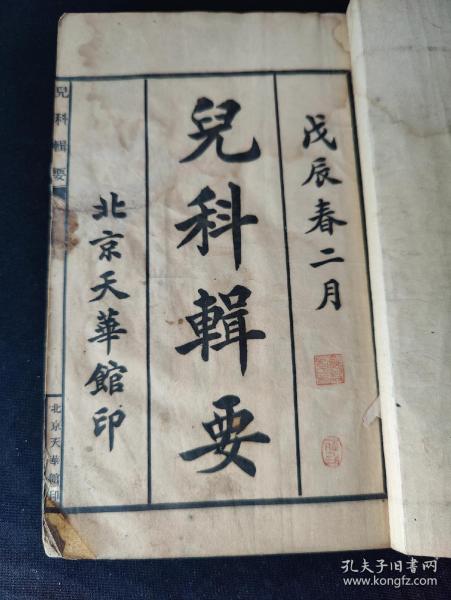 戊辰春二月
兒科輯要
北京天華館印
兒科輯要
北京天華館印
孔夫子旧书网
www.kongfz.com